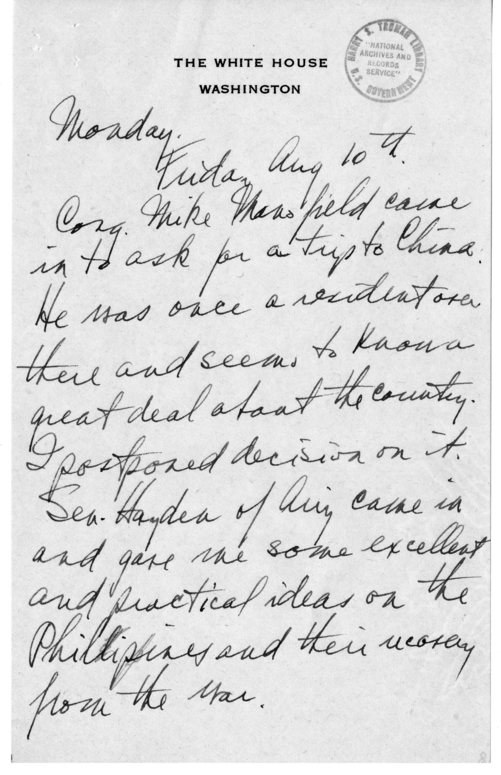 THE WHITE HOUSE
WASHINGTON
HARRY S. TRUMAN LIBRARY
"NATIONAL
ARCHIVES AND
RECORDS
SERVICE"
U.S. GOVERNMENT
Monday.
Friday Aug 10th.
Cong. Mike Mansfield came
in to ask for a trip to China.
He was once a resident over
there and seems to know a
great deal about the country.
I postponed decision on it.
Sen. Hayden of Ariz came in
and gave me some excellent
and practical ideas on the
Phillipines and their recovery
from the war.
8